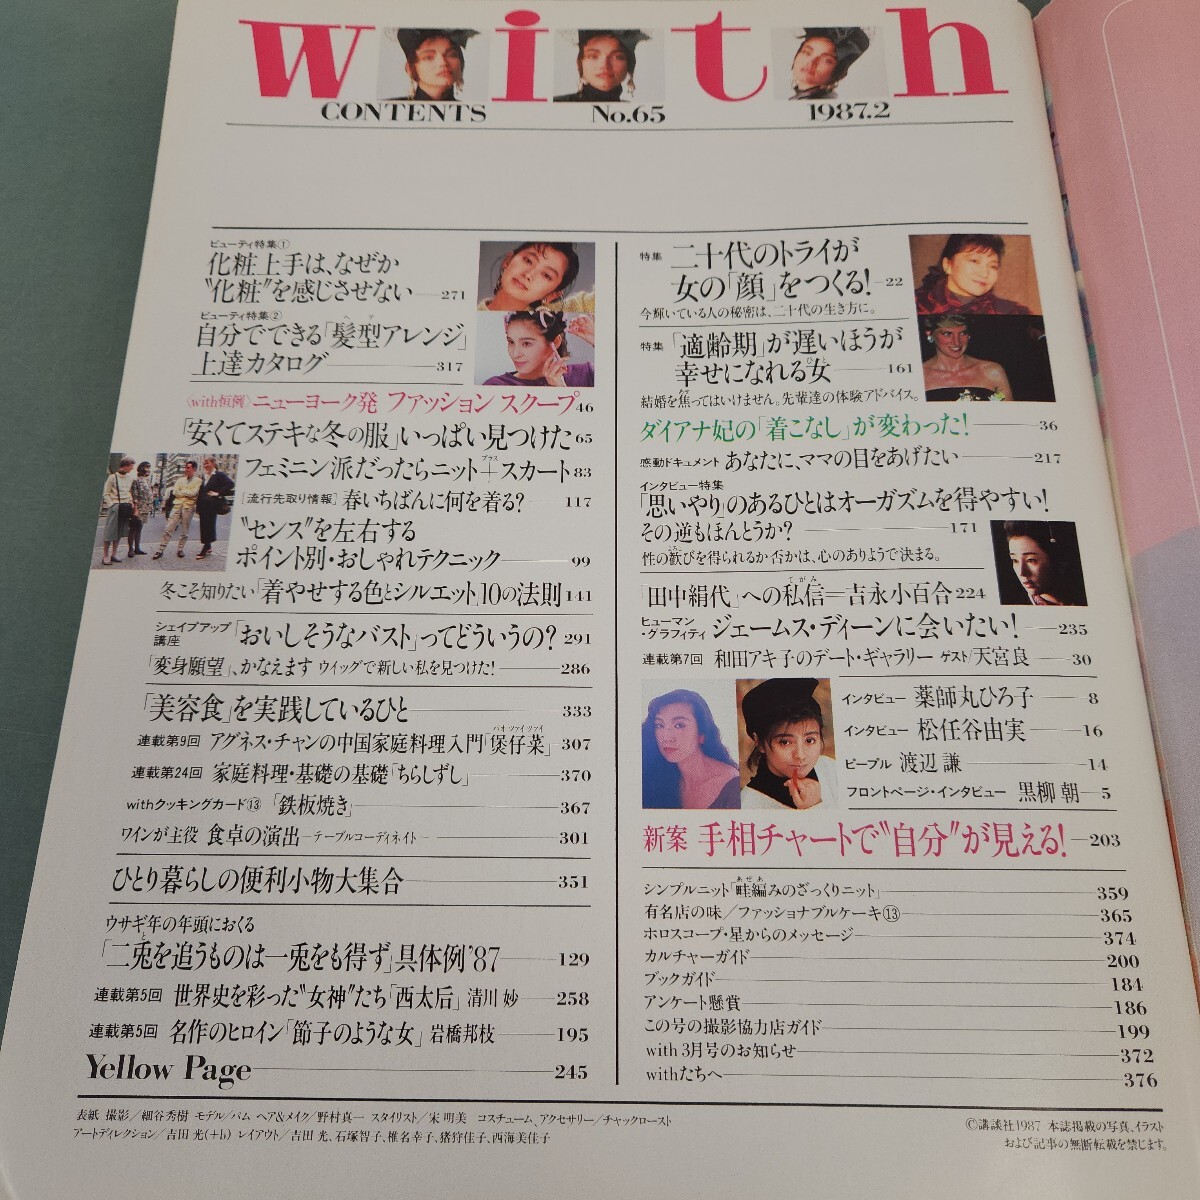 with
CONTENTS No.65 1987.2
ビューティ特集①
化粧上手は、なぜか
"化粧"を感じさせない 271
ビューティ特集②
自分でできる「髪型アレンジ」
ヘア
上達カタログ 317
〈with恒例〉ニューヨーク発 ファッション スクープ 46
「安くてステキな冬の服」いっぱい見つけた 65
フェミニン派だったらニット+スカート 83
プラス
[流行先取り情報] 春いちばんに何を着る? 117
"センス"を左右する
ポイント別・おしゃれテクニック 99
冬こそ知りたい「着やせする色とシルエット」10の法則 141
シェイプアップ講座 「おいしそうなバスト」ってどういうの? 291
「変身願望」、かなえます ウイッグで新しい私を見つけた! 286
「美容食」を実践しているひと 333
連載第9回 アグネス・チャンの中国家庭料理入門「煲仔菜」 307
パオ ツァイ ツァイ
連載第24回 家庭料理・基礎の基礎「ちらしずし」 370
withクッキングカード⑬ 「鉄板焼き」 367
ワインが主役 食卓の演出 ─テーブルコーディネイト─ 301
ひとり暮らしの便利小物大集合 351
ウサギ年の年頭におくる
「二兎を追うものは一兎をも得ず」具体例'87 129
と
連載第5回 世界史を彩った"女神"たち「西太后」 清川 妙 258
連載第5回 名作のヒロイン「節子のような女」 岩橋邦枝 195
Yellow Page 245
特集 二十代のトライが
女の「顔」をつくる! 22
今輝いている人の秘密は、二十代の生き方に。
特集 「適齢期」が遅いほうが
幸せになれる女 161
ひと
結婚を焦ってはいけません。先輩達の体験アドバイス。
ダイアナ妃の「着こなし」が変わった! 36
感動ドキュメント あなたに、ママの目をあげたい 217
インタビュー特集
「思いやり」のあるひとはオーガズムを得やすい!
その逆もほんとうか? 171
性の歓びを得られるか否かは、心のありようで決まる。
「田中絹代」への私信=吉永小百合 224
てがみ
ヒューマン・グラフィティ ジェームス・ディーンに会いたい! 235
連載第7回 和田アキ子のデート・ギャラリー ゲスト/天宮良 30
インタビュー 薬師丸ひろ子 8
インタビュー 松任谷由実 16
ピープル 渡辺 謙 14
フロントページ・インタビュー 黒柳 朝 5
新案 手相チャートで"自分"が見える! 203
シンプルニット「畦編みのざっくりニット」 359
あぜあ
有名店の味/ファッショナブルケーキ⑬ 365
ホロスコープ・星からのメッセージ 374
カルチャーガイド 200
ブックガイド 184
アンケート懸賞 186
この号の撮影協力店ガイド 199
with 3月号のお知らせ 372
withたちへ 376
表紙 撮影/細谷秀樹 モデル/パム ヘア&メイク/野村真一 スタイリスト/宋 明美 コスチューム、アクセサリー/チャックロースト
アートディレクション/吉田 光(+h) レイアウト/吉田 光、石塚智子、椎名幸子、猪狩佳子、西海美佳子
©講談社1987 本誌掲載の写真、イラスト
および記事の無断転載を禁じます。